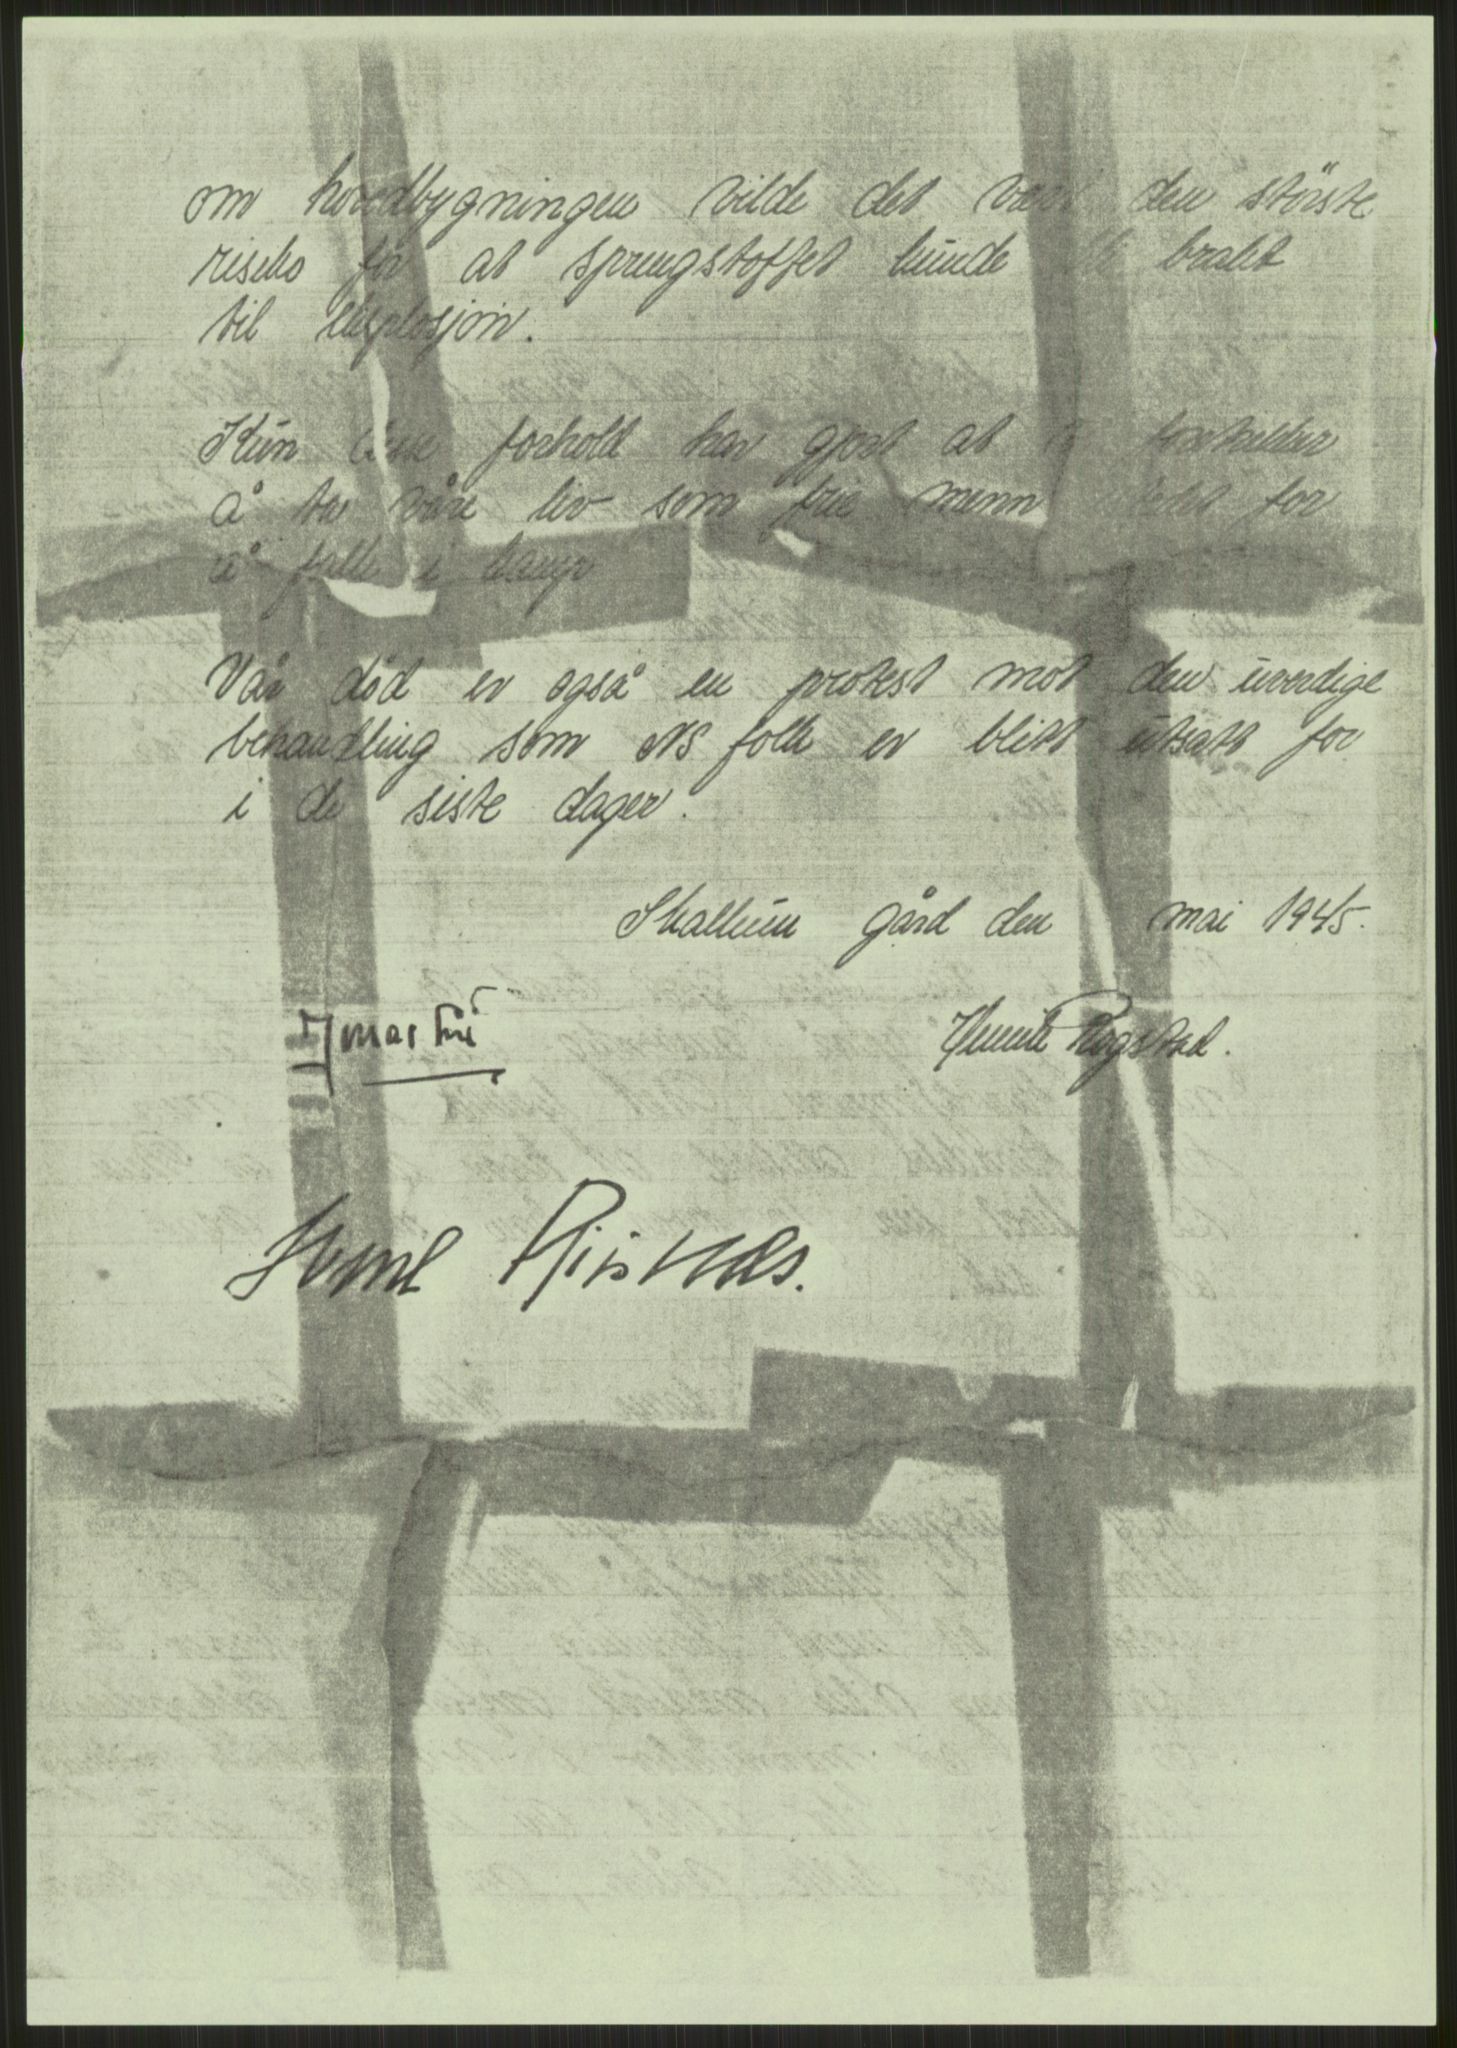 om hovedbygningen vilde det være den störste
risiko for at sprengstoffet kunde bli bragt
til eksplosjon.
Kun disse forhold har gjort at vi foretrekker
å ta våre liv som frie menn for
å falle i kamp
Vår död er også en protest mot den uverdige
behandling som NS folk er blitt utsatt for
i de siste dager.
Skallum gård den mai 1945.
Jonas Lie
Henrik Rogstad.
Sverre Riisnæs.